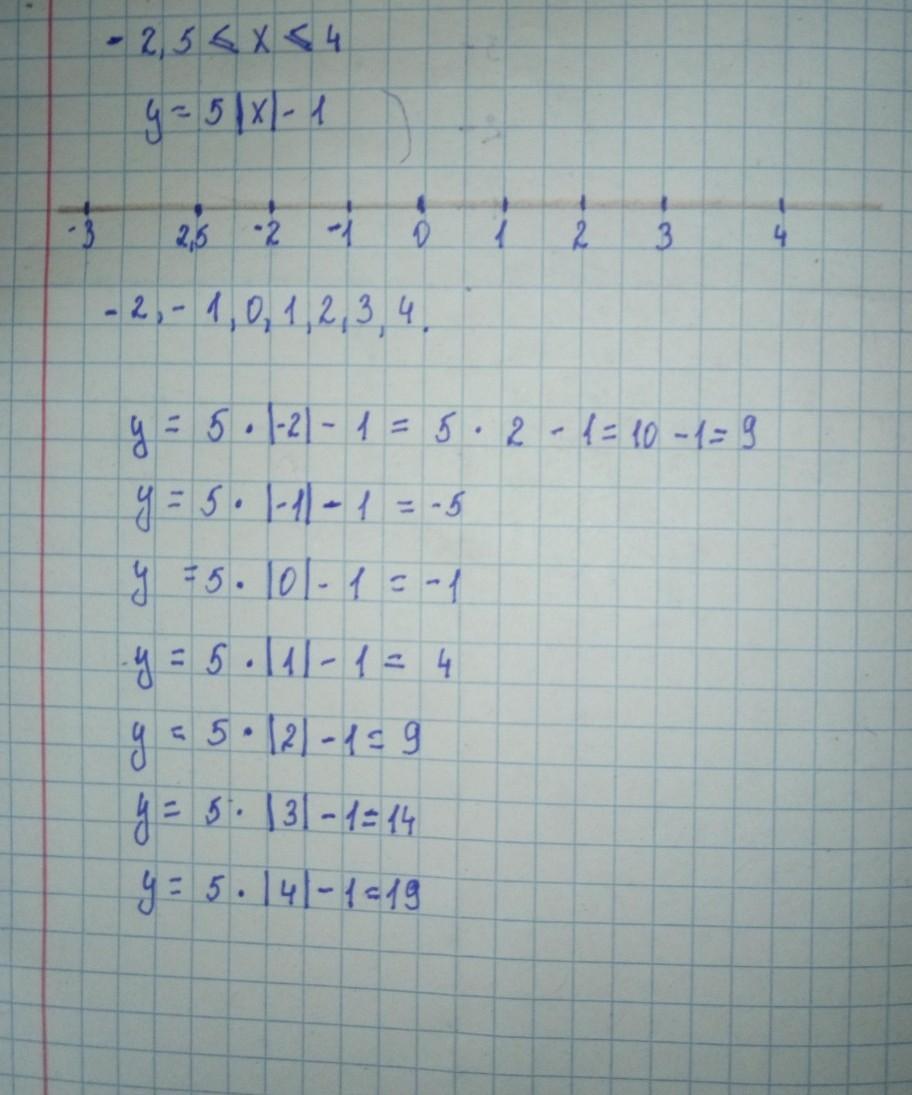 - 2,5 ≤ x ≤ 4
y = 5 |x| - 1
-3 2,5 -2 -1 0 1 2 3 4
- 2, - 1, 0, 1, 2, 3, 4.
y = 5 · |-2| - 1 = 5 · 2 - 1 = 10 - 1 = 9
y = 5 · |-1| - 1 = -5
y = 5 · |0| - 1 = -1
y = 5 · |1| - 1 = 4
y = 5 · |2| - 1 = 9
y = 5 · |3| - 1 = 14
y = 5 · |4| - 1 = 19